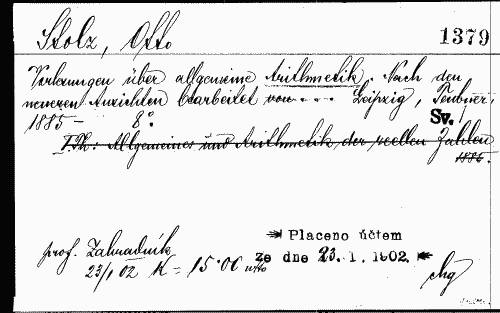 Stolz, Otto 1379
Vorlesungen über allgemeine Arithmetik. Nach den
neueren Ansichten bearbeitet von ... Leipzig, Teubner,
1885 - 8°. Sv. 1
I. Th: Allgemeines und Arithmetik der reellen Zahlen
1885.
Placeno účtem
prof. Zahradník ze dne 23. 1. 1902.
23/1 02 K = 15·00